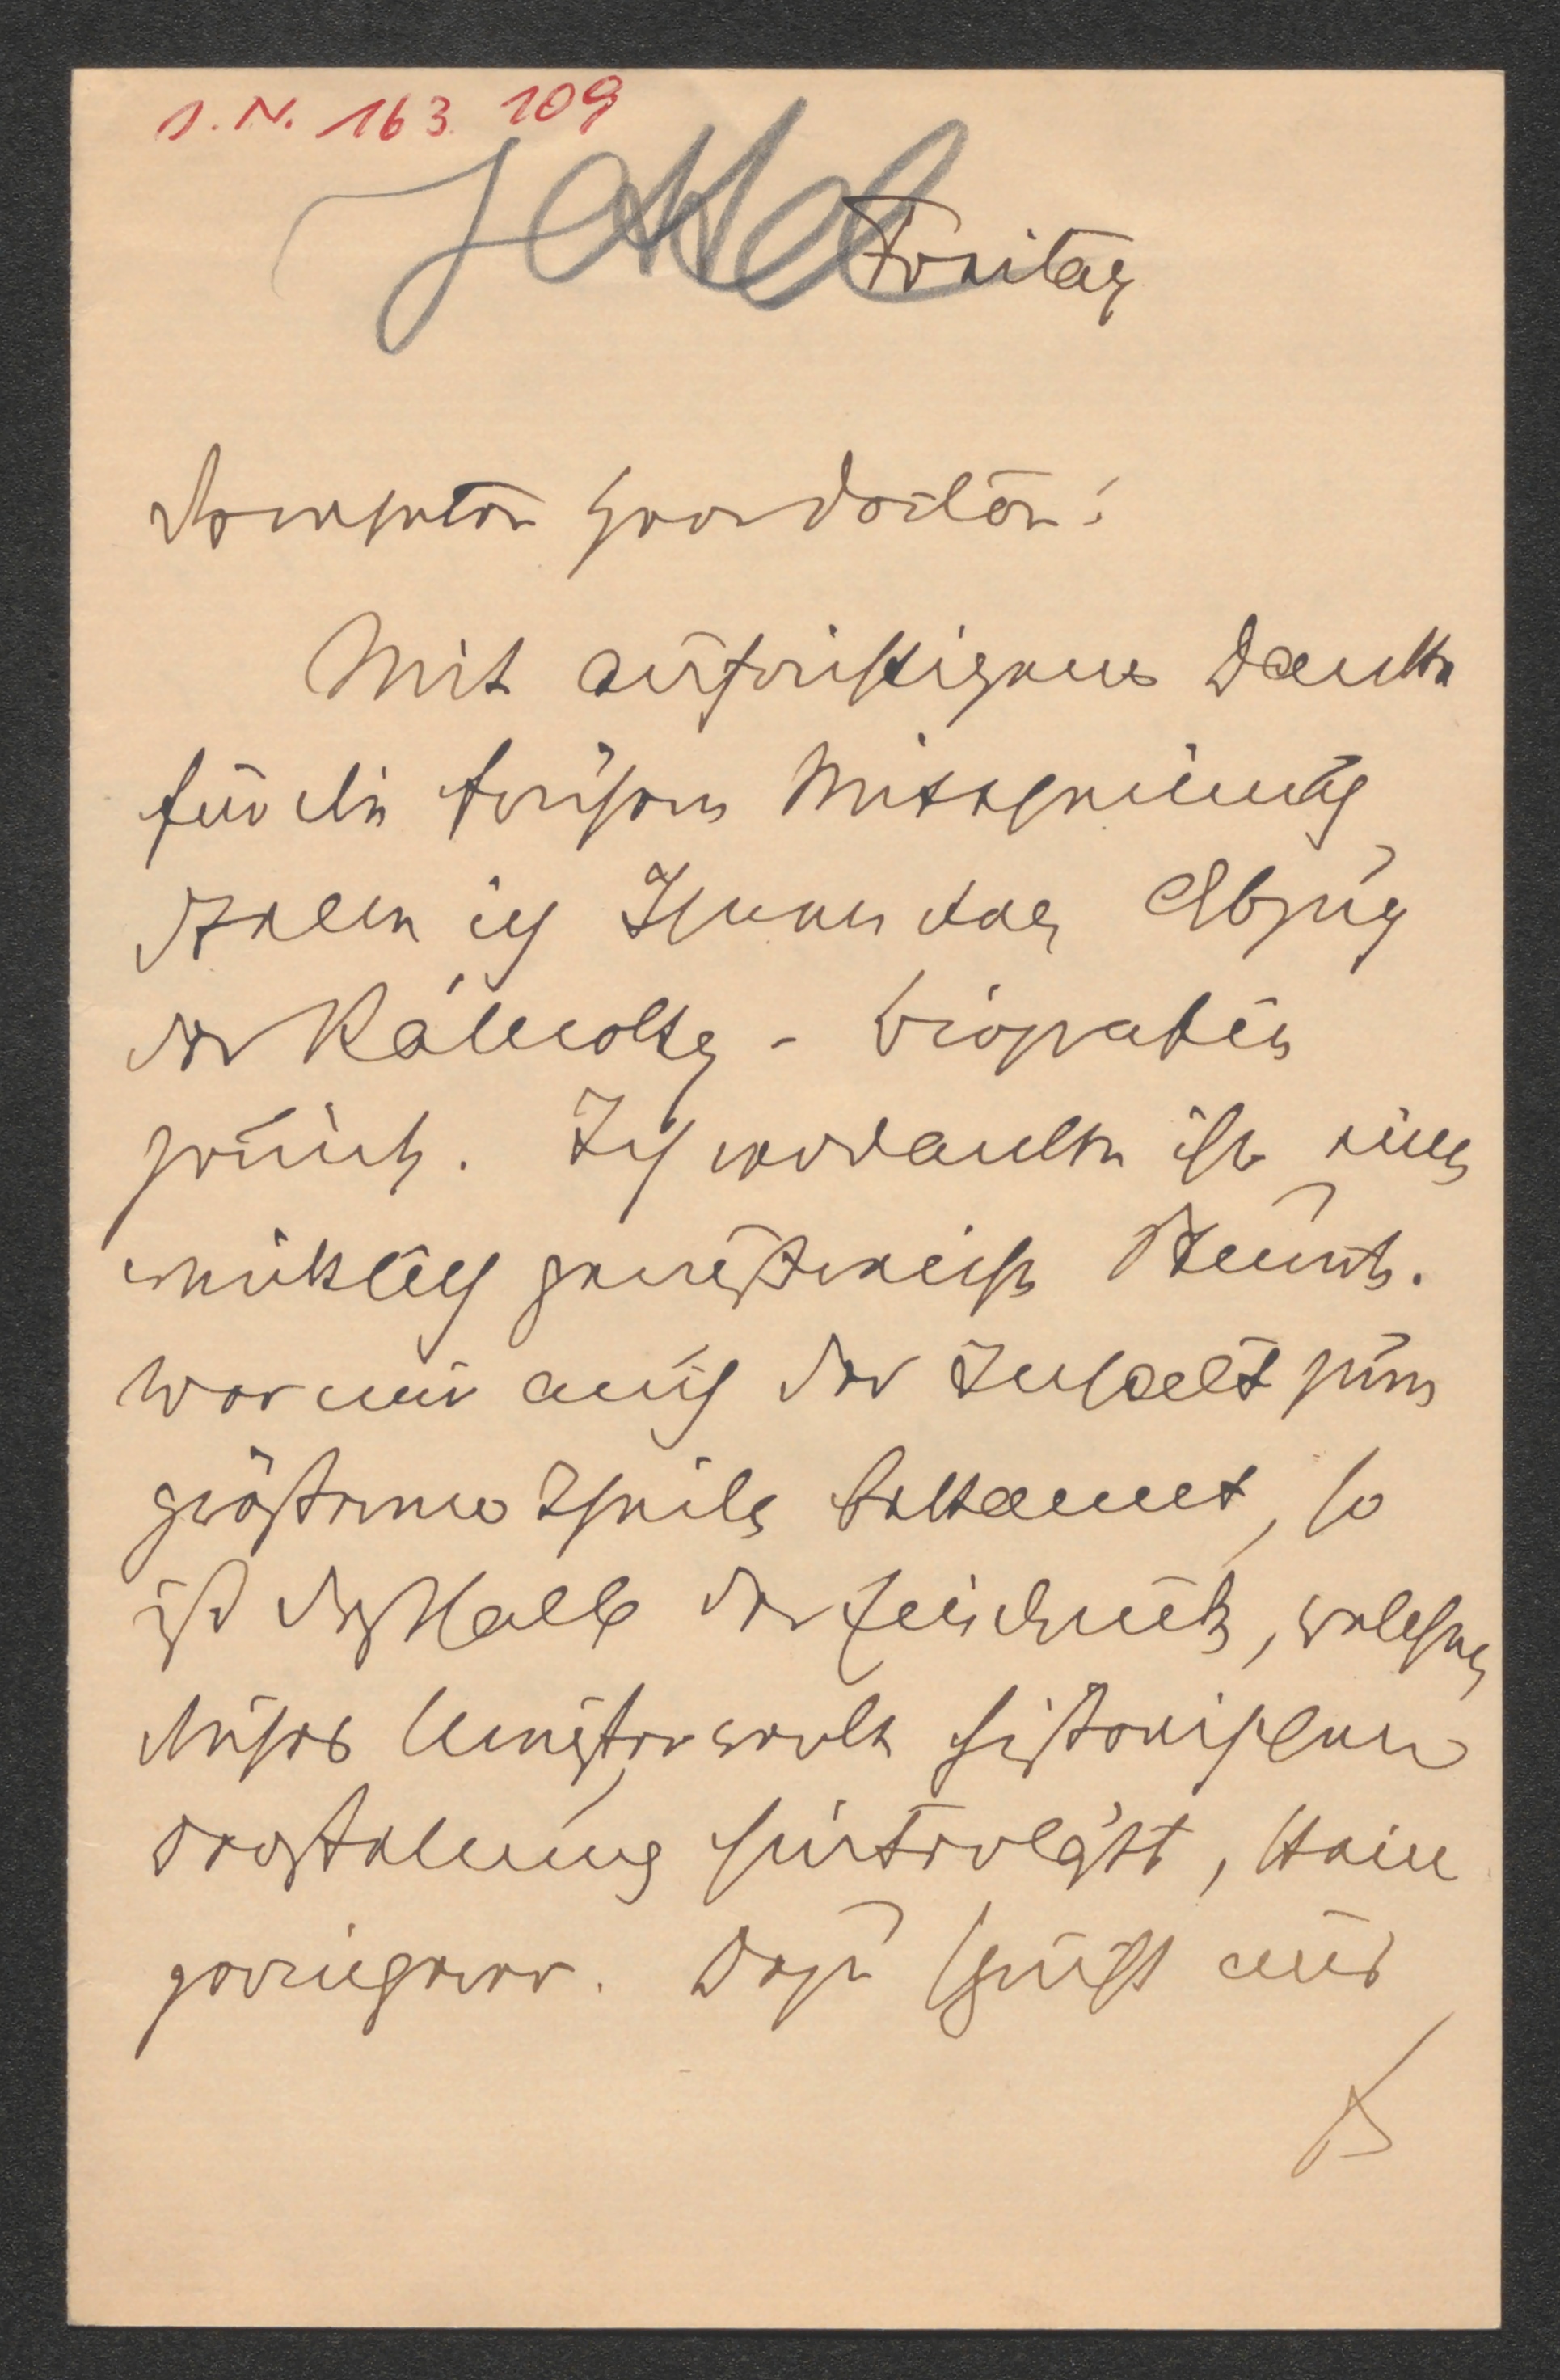 I. N. 163 109
Jettel
Freitag
Verehrter Herr Doctor!
Mit aufrichtigem Danke
für die frühere Mittheilung
stelle ich Ihnen den Abzug
der Kálnoky - Biografie
zurück. Ich verdanke ihr eine
wirklich genußreiche Stunde.
War mir auch der Inhalt zum
größten Theile bekannt, so
ist deßhalb der Eindruck, welchen
dieses Meisterwerk historischer
Darstellung hinterläßt, kein
geringerer. Dazu spricht aus